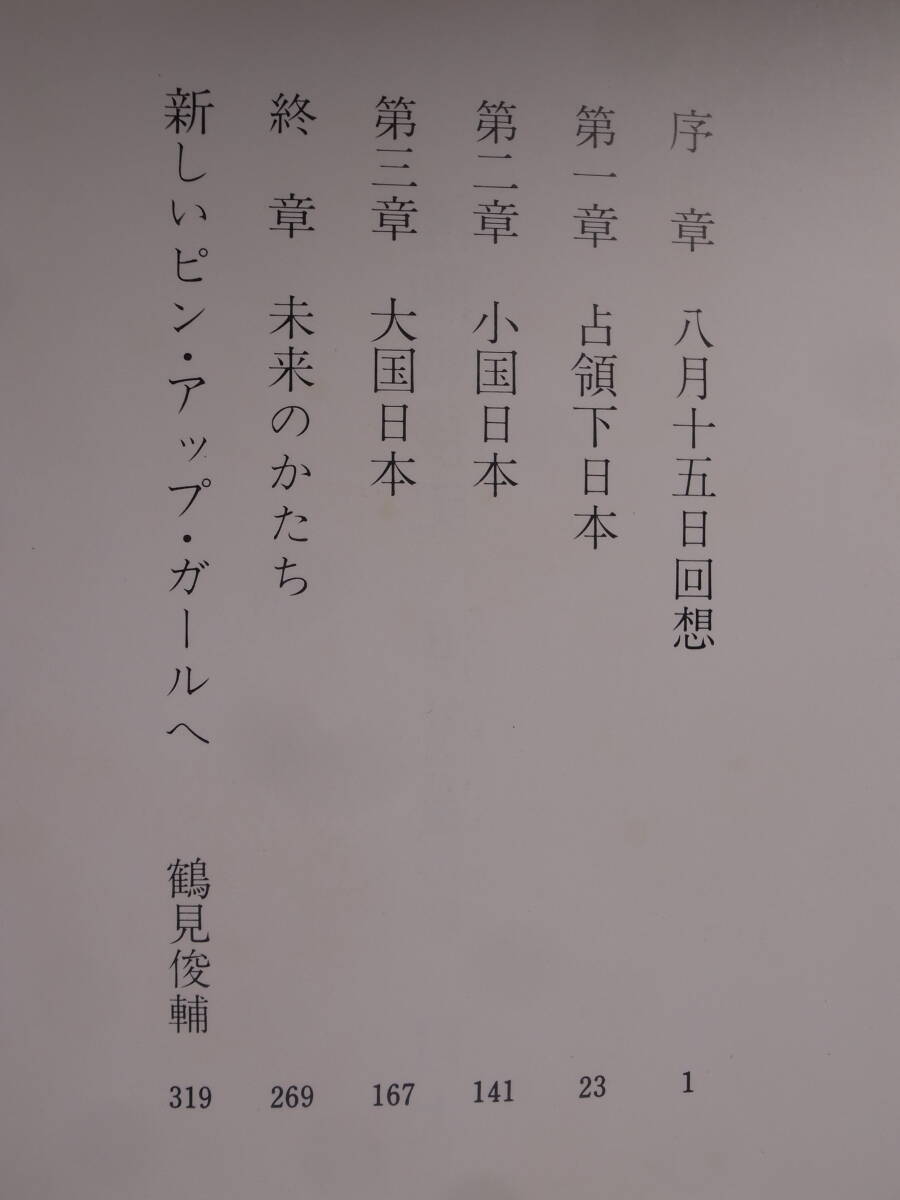 序章 八月十五日回想 1
第一章 占領下日本 23
第二章 小国日本 141
第三章 大国日本 167
終章 未来のかたち 269
新しいピン・アップ・ガールへ 鶴見俊輔 319